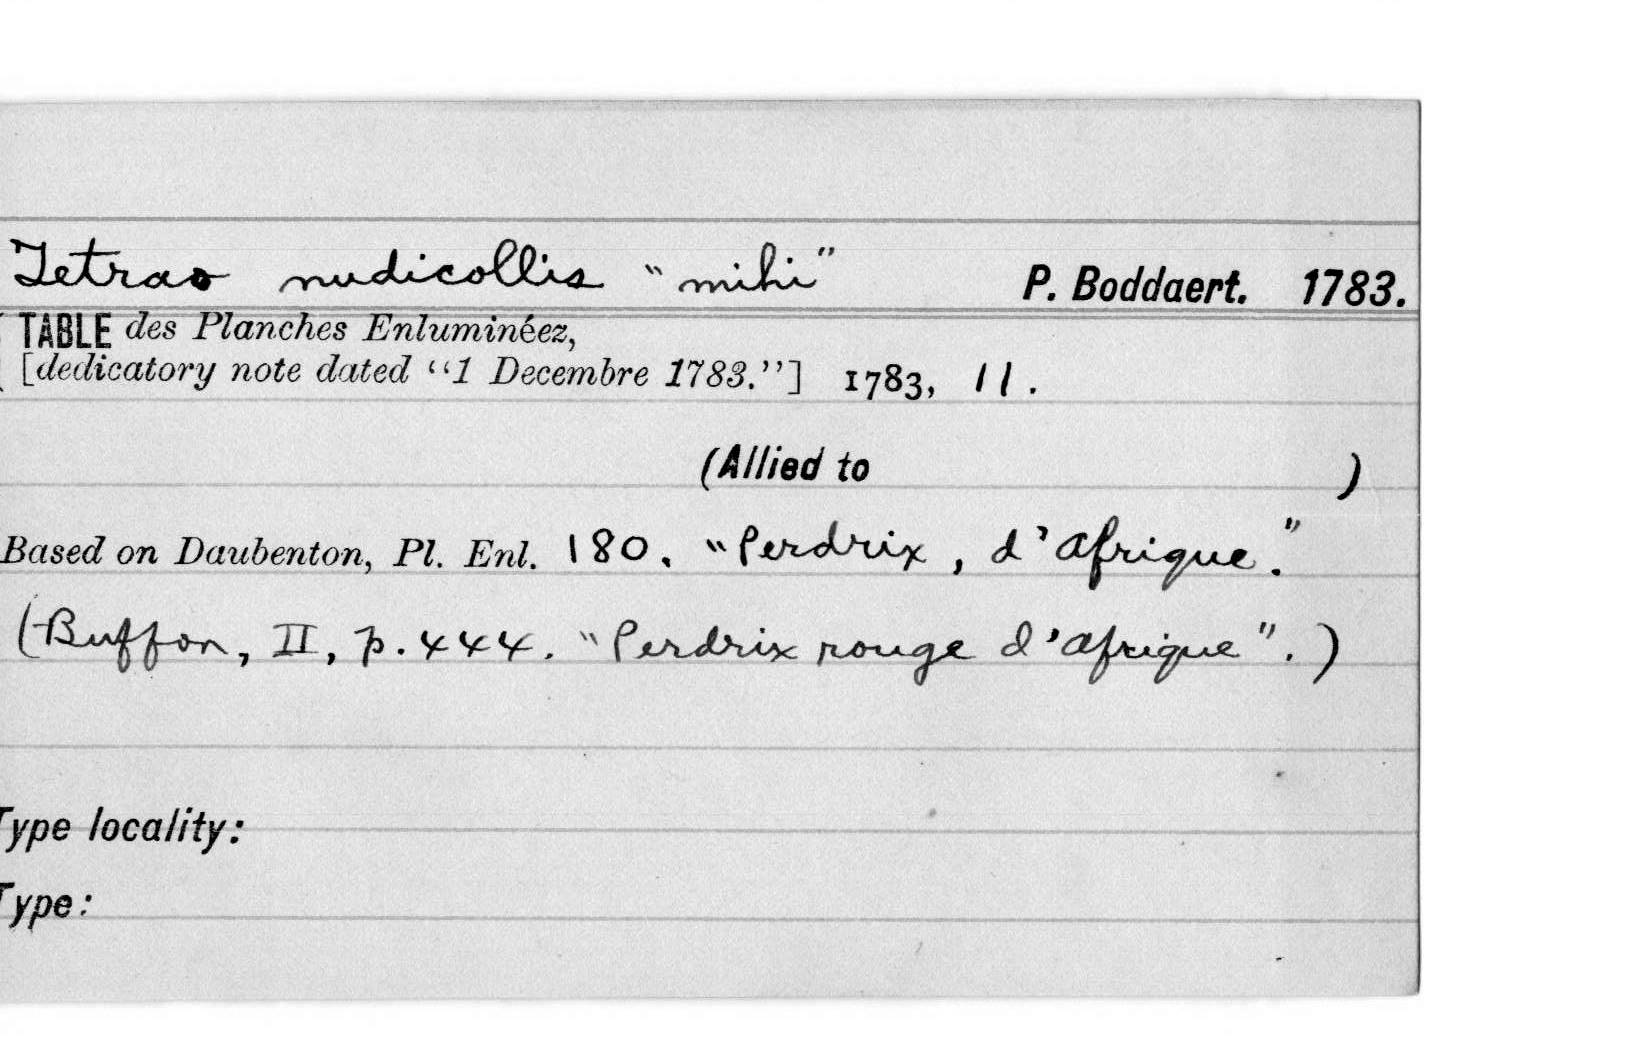 Tetrao nudicollis "mihi" P. Boddaert. 1783.
TABLE des Planches Enluminéez,
[dedicatory note dated "1 Decembre 1783."] 1783, 11.
(Allied to )
Based on Daubenton, Pl. Enl. 180. "Perdrix, d'Afrique."
(Buffon, II, p. 444. "Perdrix rouge d'Afrique".)
Type locality:
Type: